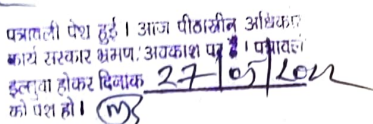 पत्रावली पेश हुई । आज पीठासीन अधिकार
कार्य सरकार भ्रमण/अवकाश पर है । पत्रावली
इलतुवा होकर दिनांक 27/05/2022
को पेश हो ।